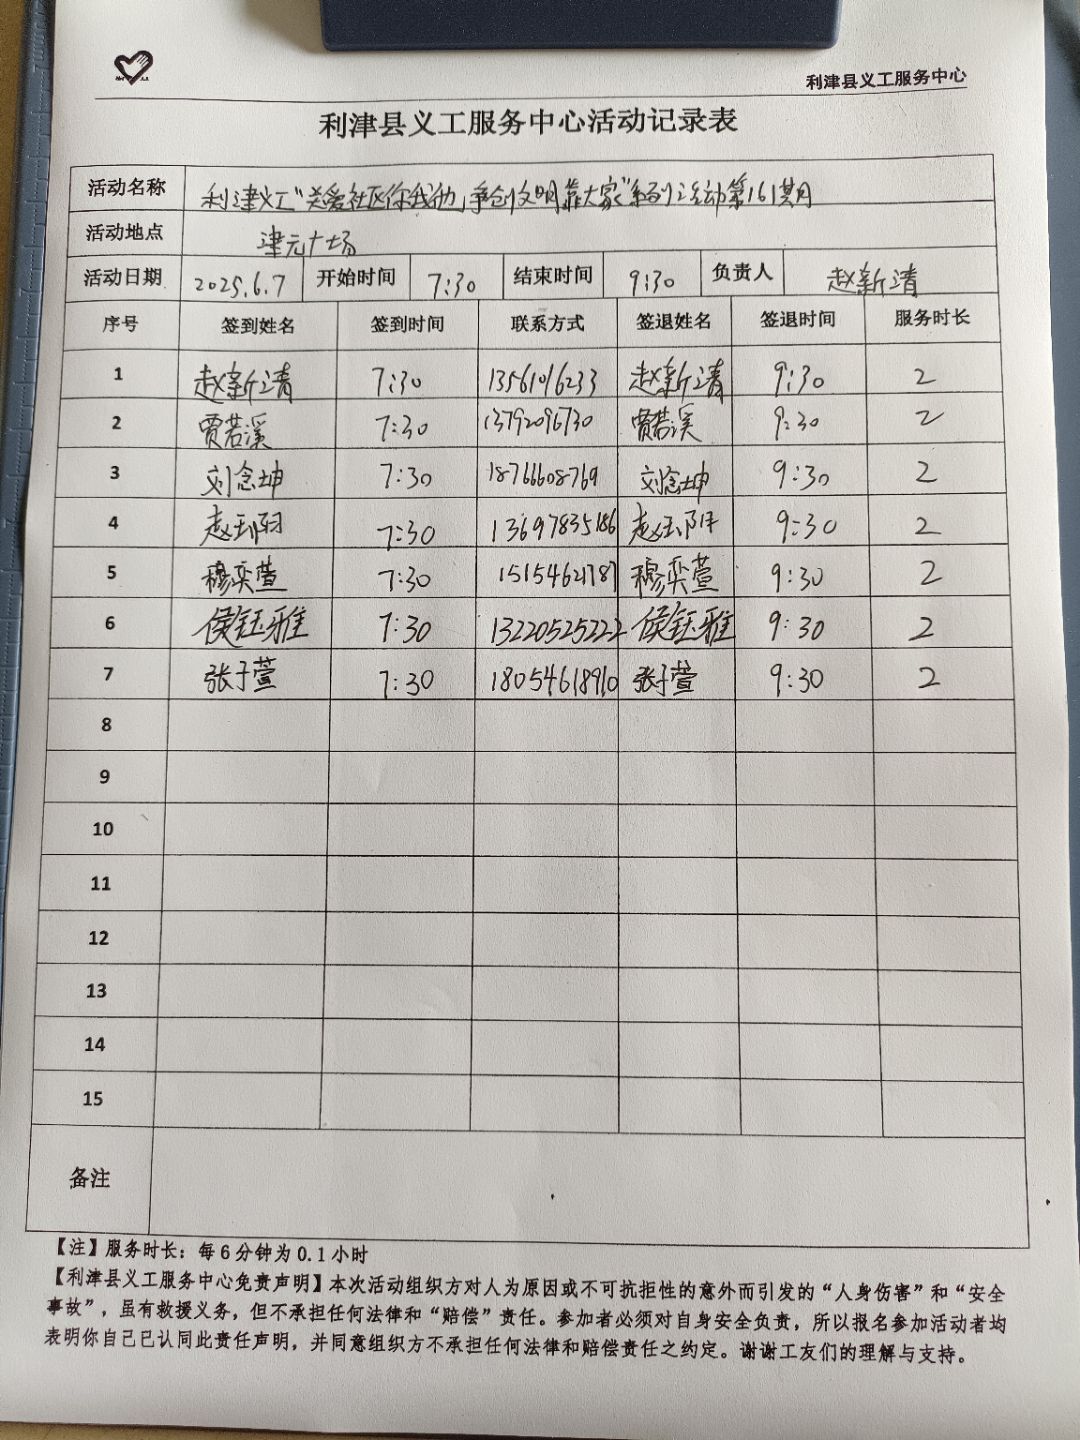 利津县义工服务中心
利津县义工服务中心活动记录表
活动名称 利津义工“关爱社区你我他,争创文明靠大家”系列活动第161期
活动地点 津元广场
活动日期 2025.6.7 开始时间 7:30 结束时间 9:30 负责人 赵新清
序号 签到姓名 签到时间 联系方式 签退姓名 签退时间 服务时长
1 赵新清 7:30 13561016233 赵新清 9:30 2
2 贾若溪 7:30 13792096730 贾若溪 9:30 2
3 刘念坤 7:30 18766608769 刘念坤 9:30 2
4 7:30 13697835186 9:30 2
5 穆奕萱 7:30 15154621787 穆奕萱 9:30 2
6 侯钰雅 7:30 13220525222 侯钰雅 9:30 2
7 张子萱 7:30 18054618910 张子萱 9:30 2
8
9
10
11
12
13
14
15
备注
【注】服务时长：每6分钟为0.1小时
【利津县义工服务中心免责声明】本次活动组织方对人为原因或不可抗拒性的意外而引发的“人身伤害”和“安全
事故”，虽有救援义务，但不承担任何法律和“赔偿”责任。参加者必须对自身安全负责，所以报名参加活动者均
表明你自己已认同此责任声明，并同意组织方不承担任何法律和赔偿责任之约定。谢谢工友们的理解与支持。